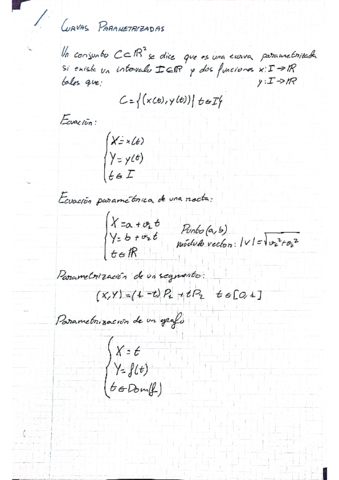 CURVAS PARAMETRIZADAS
Un conjunto C⊂ℝ² se dice que es una curva parametrizada
si existe un intervalo I⊂ℝ y dos funciones x:I→ℝ
tales que: y:I→ℝ
C={(x(t),y(t))| t∈I}
Ecuación:
X=x(t)
Y=y(t)
t∈I
Ecuación paramétrica de una recta:
X=a+v₁t
Y=b+v₂t
t∈ℝ
Punto(a,b)
módulo vector: |v|=√v₁²+v₂²
Parametrización de un segmento:
(X,Y)=(1-t)P₁+tP₂ t∈[0,1]
Parametrización de un grafo
X=t
Y=f(t)
t∈Dom(f)